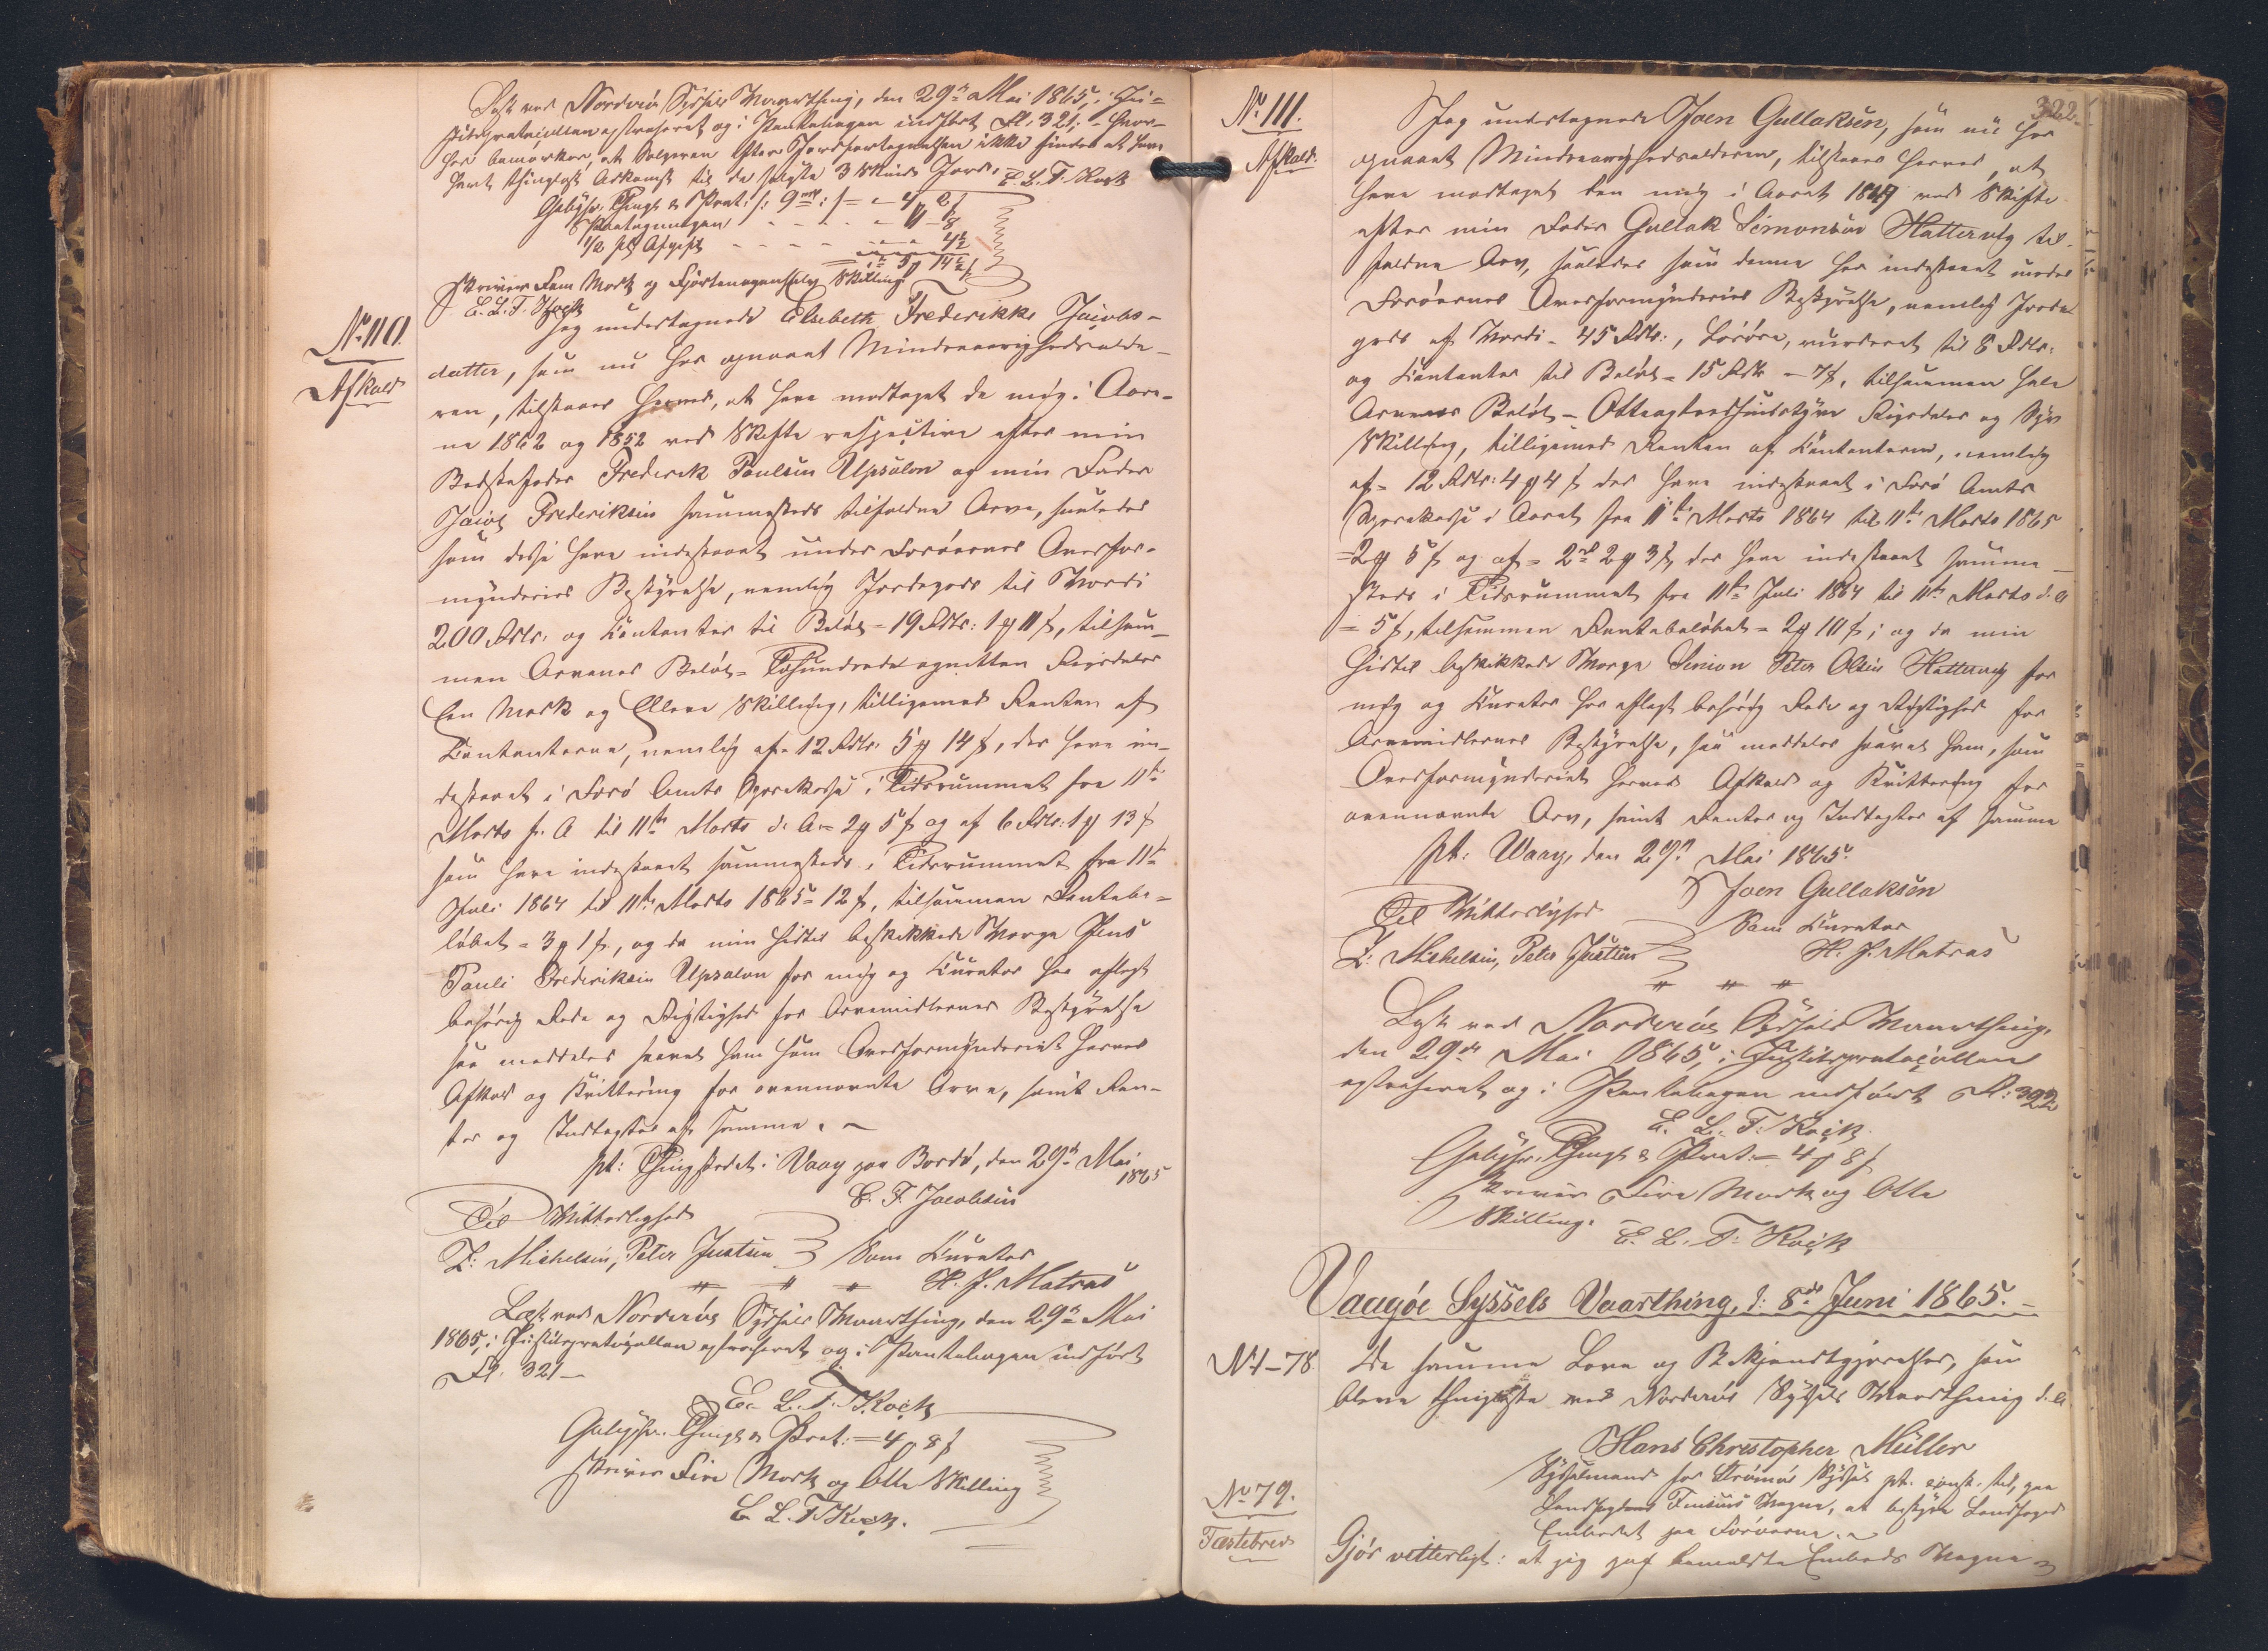 Læst ved Norderøe Syssels Vaarthing, den 29de Mai 1865, i Ju-
stitsprotocollen extraheret og i Pantebogen indført Fl. 321; - hvor-
hos bemærkes, at Sælgeren efter Jordfortegnelsen ikke findes at have
havt thinglæst Adkomst til de solgte 3 Skind Jord. E. L. T. Kock
Gebyhr. Thingl. & Prot: /: 9 mk :/ = - 4 8
Paategningen - - - - 8
1/2 pCt Afgift - - - - 4½
14½
Skriver Fem Mark og Fjortenoghalv Skilling
E. L. T. Kock
No 110.
Afkald
Jeg undertegnede Elsebeth Frederikke Jacobs-
datter, som nu har opnaaet Mindreaarighedsalde-
ren, tilstaaer herved, at have modtaget de mig i Aare-
ne 1862 og 1852 ved Skifte respective efter min
Bedstefader Frederik Poulsen Upsalon og min Fader
Jacob Frederiksen sammesteds tilfaldne Arve, saaledes
som disse have indestaaet under Færøernes Overfor-
mynderies Bestyrelse, nemlig Jordegods til Værdi
200 Rdlr. og Contanter til Beløb = 19 Rdlr: 1 11 s, tilsam-
men Arvenes Beløb = Tohundrede ognitten Rigsdaler
Een Mark og Elleve Skilling, tilligemed Renten af
Contanterne, nemlig af = 12 Rdlr. 5 14 s, der have in-
destaaet i Færø Amts Sparekasse i Tidsrummet fra 11te
Marts f. A til 11te Marts d. A = 2 5 s og af 6 Rdlr: 1 13 s
som have indestaaet sammesteds i Tidsrummet fra 11te
Juli 1864 til 11te Marts 1865 = 12 s, tilsammen Rentebe-
løbet = 3 1 s, og da min hidtil beskikkede Værge Jens
Pauli Frederiksen Upsalon for mig og Curator har aflagt
behørig Rede og Rigtighed for Arvemidlernes Bestyrelse
saa meddeles saavel ham som Overformynderiet herved
Afkald og Kvittering for ovennævnte Arve, samt Ren-
ter og Indtægter af samme. -
pt: Thingstedet i Vaag paa Bordø, den 29de Mai
1865
E. F. Jacobsen
Til Vitterlighed
Z: Michelsen, Peter Justsen Som Curator
H. J. Matras
Læst ved Norderøe Syssels Vaarthing, den 29de Mai
1865, i Justitsprotocollen extraheret og i Pantebogen indført
Fl. 321 -
E. L. T. Kock
Gebyhr. Thingl. & Prot: = 4 8 s
Skriver Fire Mark og Otte Skilling
E. L. T. Kock.
322.
No 111.
Afkald.
Jeg undertegnede Joen Gullaksen, som nu har
opnaaet Mindreaarighedsalderen, tilstaaer herved, at
have modtaget den mig i Aaret 1849 ved Skifte
efter min Fader Gullak Simonsen Hattervig til-
faldne Arv, saaledes som denne har indestaaet under
Færøernes Overformynderies Bestyrelse, nemlig Jorde
gods af Værdi - 45 Rdlr:, Løsøre, vurderet til 8 Rdlr:
og Contanter til Beløb = 15 Rdlr - 7 s, tilsammen hele
Arvens Beløb - Otteogtredsindstyve Rigsdaler og Syv
Skilling, tilligemed Renten af Contanterne, nemlig
af = 12 Rdlr: 4 4 s der have indestaaet i Færø Amts
Sparekasse i Aaret fra 11te Marts 1864 til 11te Marts 1865
= 2 5 s og af = 2 rd 2 3 s, der have indestaaet samme-
steds i Tidsrummet fra 11te Juli 1864 til 11te Marts d. A
= 5 s, tilsammen Rentebeløbet = 2 10 s; og da min
hidtil beskikkede Værge Simon Peter Olsen Hattervig for
mig og Curator har aflagt behørig Rede og Rigtighed for
Arvemidlernes Bestyrelse, saa meddeles saavel ham, som
Overformynderiet herved Afkald og Kvittering for
ovennævnte Arv, samt Renter og Indtægter af samme
pt: Waag, den 29de Mai 1865.
Joen Gullaksen
Til Vitterlighed Som Curator
Z: Michelsen, Peter Justsen H. J. Matras
Læst ved Norderøe Syssels Vaarthing,
den 29de Mai 1865, i Justitsprotocollen
extraheret og i Pantebogen indført Fl: 322
E. L. T. Kock
Gebyhr. Thingl. & Prot. = 4 8 s
Skriver Fire Mark og Otte
Skilling. E. L. T. Kock
Vaagøe Syssels Vaarthing, d: 8de Juni 1865. -
No 1-78 De samme Love og Bekjendtgjørelser, som
bleve thinglæste ved Norderøe Syssels Vaarthing d. A
Hans Christopher Müller
Sysselmand for Strømøe Syssel pt. const. til, paa
Landfoged Finsens Vegne, at bestyre Landfoged
Embedet paa Færøerne. -
No 79.
Fæstebrev
Gjør vitterligt: at jeg paa bemeldte Embeds Vegne